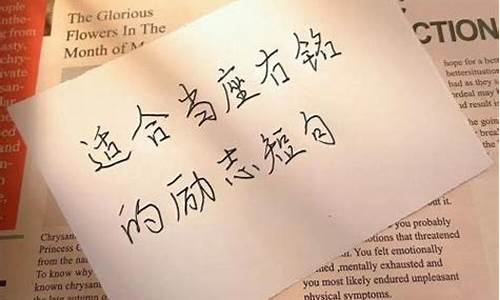 The Glorious
Flowers In The
Month of M
CTION
适合当座右铭
的励志短句
hope for a
had as they
ordeal may
d results
the going
Chrysan
Princess
from the
To know why
known chrysan
you probably
otions that threatened
You felt emotionally
,mentally exhausted and
you most likely endured unpleasant
physical symptoms.